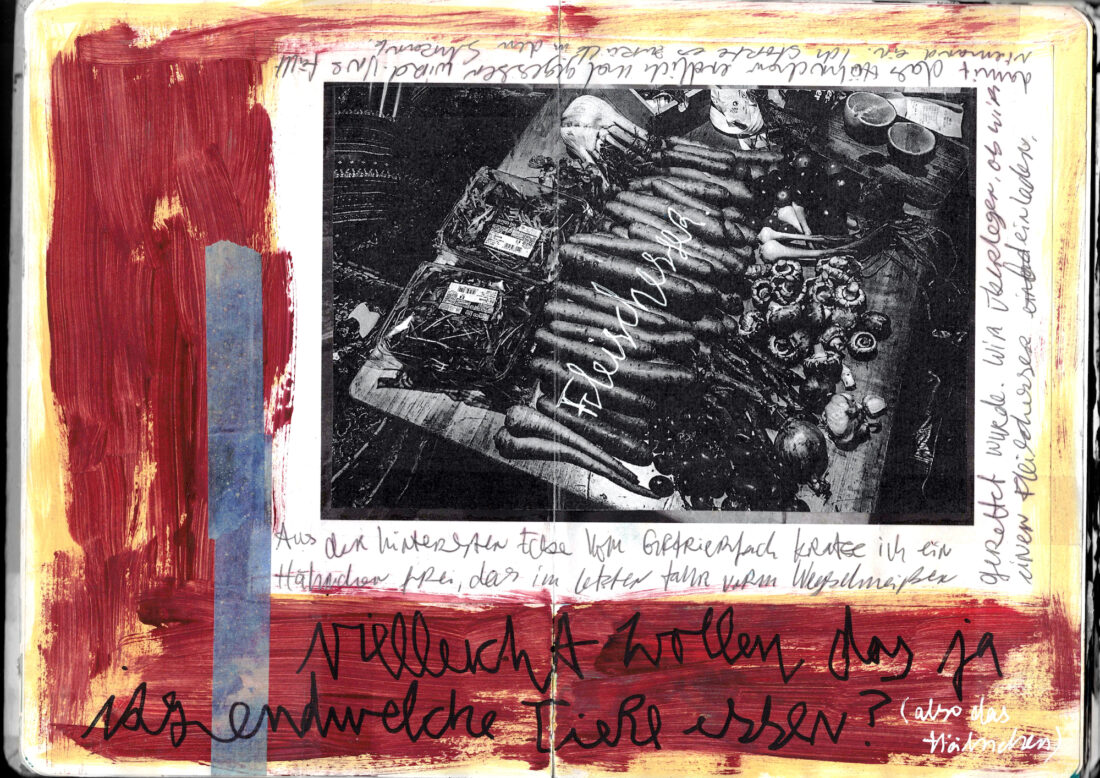 Fleischesser
Aus der hintersten Ecke vom Gefrierfach kratze ich ein
Hähnchen frei, das im letzten Jahr vorm Wegschmeißen
gerettet wurde. Wir überlegen, ob wir
einen Fleischesser einladen,
damit das Hähnchen endlich mal gegessen wird. Uns fällt
niemand ein. Ich stopfe es zurück in den Schrank.
Vielleicht wollen das ja
irgendwelche Tiere essen?
(also das
Hähnchen)